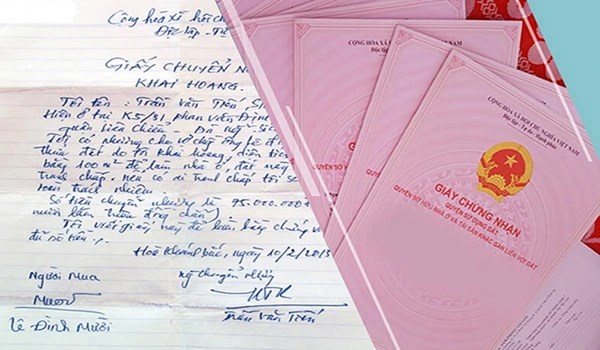 Cộng hòa xã hội ch
Độc lập - Tự
GIẤY CHUYỂN N
KHAI HOANG.
Tôi tên : Trần Văn Tiến S
Hiện ở tại K5/31, phan văn Định
quận Liên chiểu - Đà nẵng
Tôi có nhường cho vợ chồng
thửa đất do tôi khai hoang, diện tích
bằng 100 m2 để làm nhà ở, đất này
tranh chấp, nếu có ai tranh chấp tôi
toàn trách nhiệm.
Số tiền chuyển nhượng là 75.000.000
mươi lăm triệu đồng chẵn)
Tôi viết giấy này để làm bằng chứng v
đủ số tiền.
Hoà Khánh Bắc, ngày 10/2/2013
Người Mua
Ng chuyển nhượng
Mười
Lê Đình Mười
Trần Văn Tiến
CỘNG HÒA XÃ HỘI CHỦ NGHĨA VIỆT NAM
CỘNG HÒA XÃ HỘI CHỦ NGHĨA VIỆT NAM
Độc lập - Tự do - Hạnh phúc
GIẤY CHỨNG NHẬN
QUYỀN SỬ DỤNG ĐẤT
QUYỀN SỞ HỮU NHÀ Ở VÀ TÀI SẢN KHÁC GẮN LIỀN VỚI ĐẤT